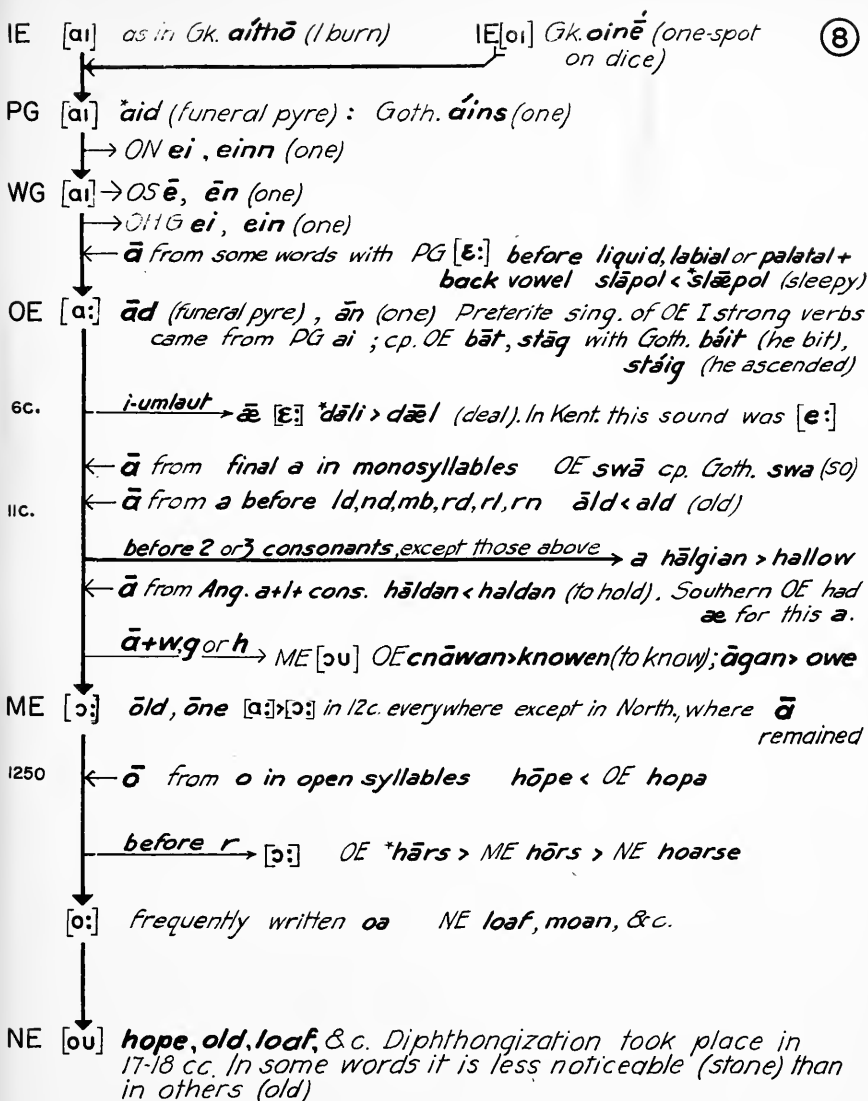 IE [ɑɪ] as in Gk. aíthō (I burn) IE[oɪ] Gk. oinḗ (one-spot ⑧
on dice)
PG [ɑɪ] *aid (funeral pyre) : Goth. áins (one)
→ ON ei, einn (one)
WG [ɑɪ] → OS ē, ēn (one)
→ OHG ei, ein (one)
← ā from some words with PG [ɛ:] before liquid, labial or palatal +
back vowel slāpol < *slǣpol (sleepy)
OE [ɑ:] ād (funeral pyre), ān (one) Preterite sing. of OE I strong verbs
came from PG ai ; cp. OE bāt, stāg with Goth. báit (he bit),
stáig (he ascended)
6c. i-umlaut → ǣ [ɛ:] *dāli > dǣl (deal). In Kent. this sound was [e:]
← ā from final a in monosyllables OE swā cp. Goth. swa (so)
← ā from a before ld, nd, mb, rd, rl, rn āld < ald (old)
11c.
before 2 or 3 consonants, except those above → a hālgian > hallow
← ā from Ang. a+l+ cons. hāldan < haldan (to hold). Southern OE had
æ for this a.
ā+w, g or h → ME [ɔu] OE cnāwan > knowen (to know); āgan > owe
ME [ɔ:] ōld, ōne [ɑ:]>[ɔ:] in 12c. everywhere except in North., where ā
remained
1250 ← ō from o in open syllables hōpe < OE hopa
before r → [ɔ:] OE *hārs > ME hōrs > NE hoarse
[o:] frequently written oa NE loaf, moan, &c.
NE [ou] hope, old, loaf, &c. Diphthongization took place in
17-18 cc. In some words it is less noticeable (stone) than
in others (old)